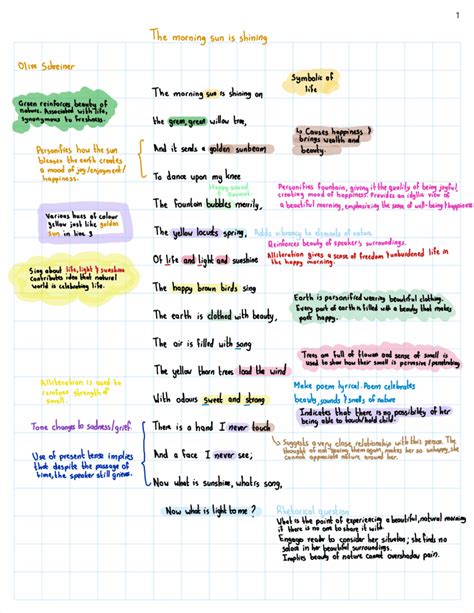 1
The morning sun is shining
Olive Schreiner
Symbolic of
life
Green reinforces beauty of
nature. Associated with life,
synonymous to freshness.
The morning sun is shining on
the green, green willow tree,
↳ Causes happiness &
brings wealth and
beauty.
Personifies how the sun
blesses the earth creates
a mood of joy/enjoyment/
happiness.
And it sends a golden sunbeam
To dance upon my knee
Happy sound
Personifies fountain, giving it the quality of being joyful,
creating mood of happiness. Provides an idyllic view of
a beautiful morning, emphasizing the sense of well-being/happiness
The fountain bubbles merrily,
Various hues of colour
yellow just like golden
sun in line 3
The yellow locusts spring,
Adds vibrancy to elements of nature
Reinforces beauty of speaker's surroundings.
Of life and light and sunshine
Alliteration gives a sense of freedom & unburdened life in
the happy morning.
Sing about life, light & sunshine
contributes idea that natural
world is celebrating life.
The happy brown birds sing
The earth is clothed with beauty,
Earth is personified wearing beautiful clothing.
Every part of earth is filled with a beauty that makes
poet happy.
The air is filled with song
The yellow thorn trees load the wind
Trees are full of flower and sense of smell is
used to show how their smell is pervasive/penetrating
Alliteration is used to
reinforce strength of
smell.
With odours sweet and strong
Make poem lyrical. Poem celebrates
beauty, sounds & smells of nature
Tone changes to sadness/grief.
There is a hand I never touch
Indicates that there is no possibility of her
being able to touch/hold child.
And a face I never see;
↳ Suggests a very close relationship with this peace. The
thought of not seeing them again, makes her so unhappy, she
cannot appreciate nature around her.
Use of present tense implies
that despite the passage of
time, the speaker still grieves.
Now what is sunshine, what is song,
Now what is light to me?
Rhetorical question
What is the point of experiencing a beautiful, natural morning
if there is no one to share it with.
Engages reader to consider her situation; she finds no
solace in her beautiful surroundings.
Implies beauty of nature cannot overshadow pain.